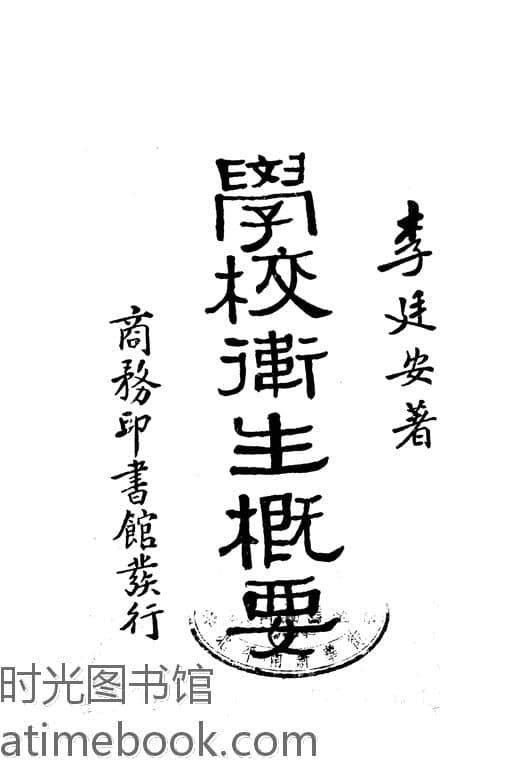 李廷安著
學校衛生概要
商務印書館發行
时光图书馆
atimebook.com